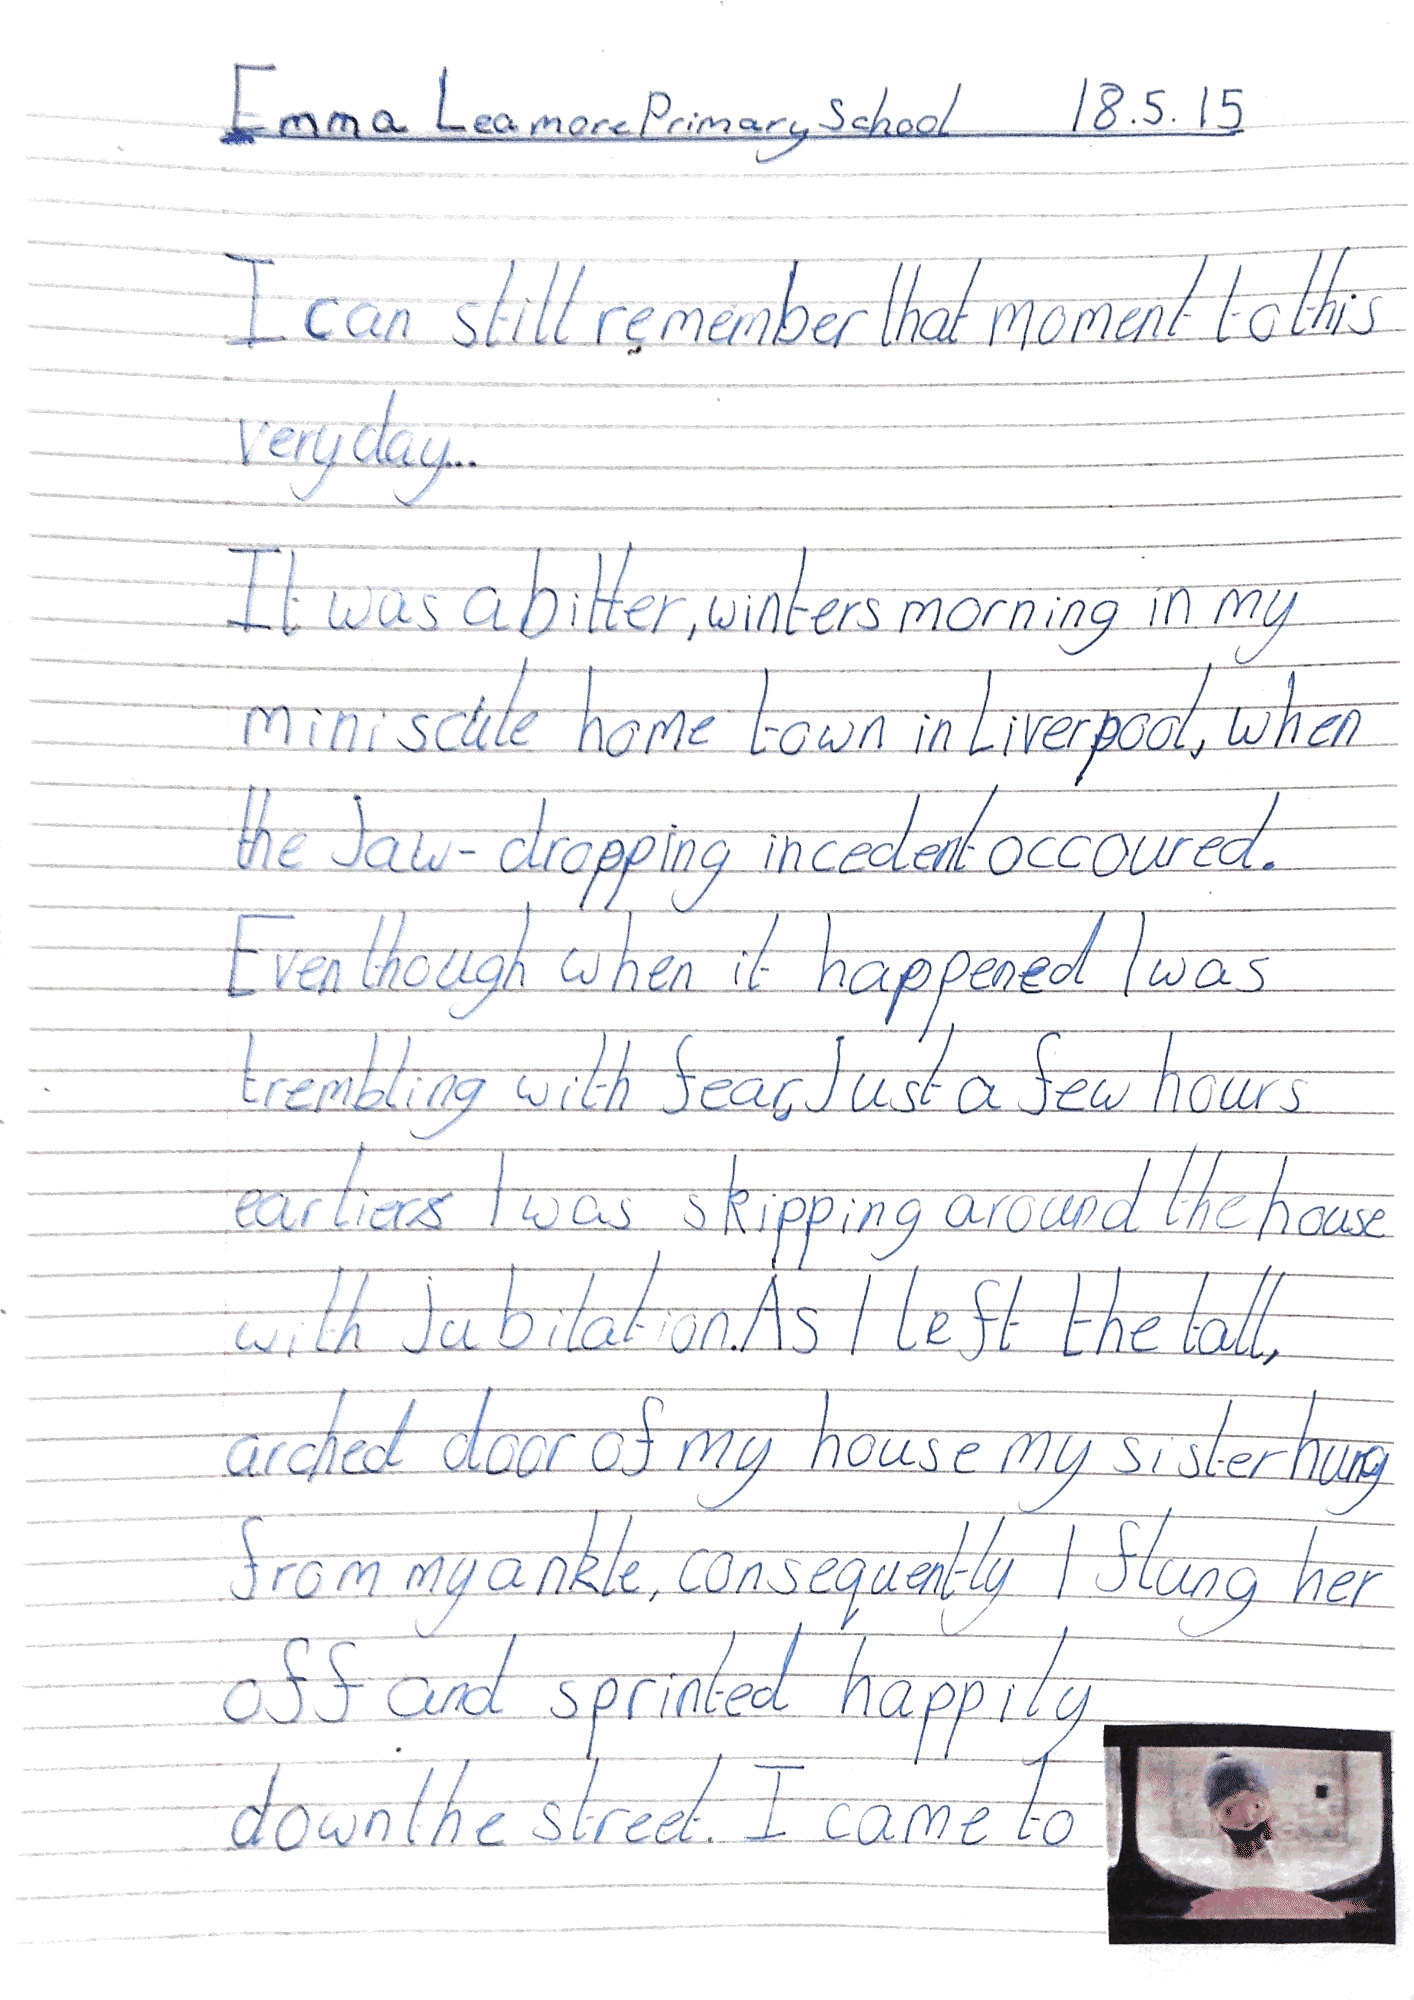 Emma Leamore Primary School 18.5.15
I can still remember that moment to this
very day...
It was a bitter, winters morning in my
miniscule home town in Liverpool, when
the Jaw-dropping incedent occoured.
Even though when it happened I was
trembling with fear, Just a few hours
earliers I was skipping around the house
with Jubilation. As I left the tall,
arched door of my house my sister hung
from my ankle, consequently I flung her
off and sprinted happily
down the street. I came to